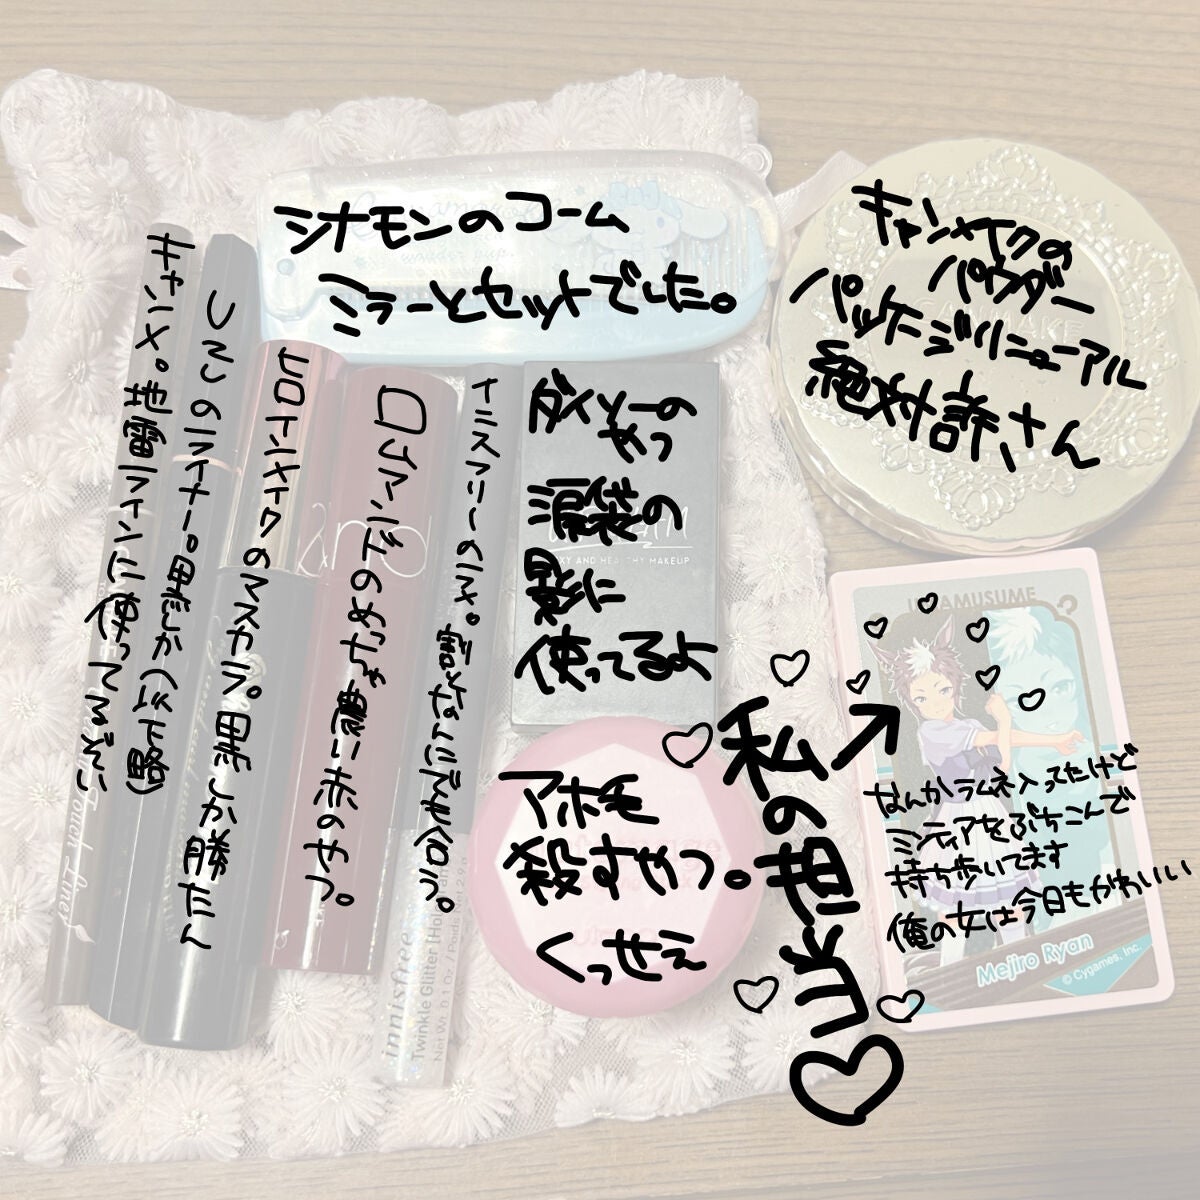 シナモンのコーム
ミラーとセットでした。
キャンメイクの
パウダー
パッケージリニューアル
絶対許さん
キャンメ。地雷ラインに使ってるぞい
UZUのライナー。黒しか(以下略)
ヒロインメイクのマスカラ。黒しか勝たん
ロムアンドのめちゃ濃い赤のやつ。
イニスフリーのラメ。割となににでも合う。
ダイソーの
やつ
涙袋の
影に
使ってるよ
アホ毛
殺すやつ。
くっせえ
私の担当
なんかラムネ入ってたけど
ミンティアをぶちこんで
持ち歩いてます
俺の女は今日もかわいい
UMAMUSUME
Mejiro Ryan
© Cygames, Inc.
Touch Liner
innisfree
Twinkle Glitter
XY AND HEALTHY MAKEUP